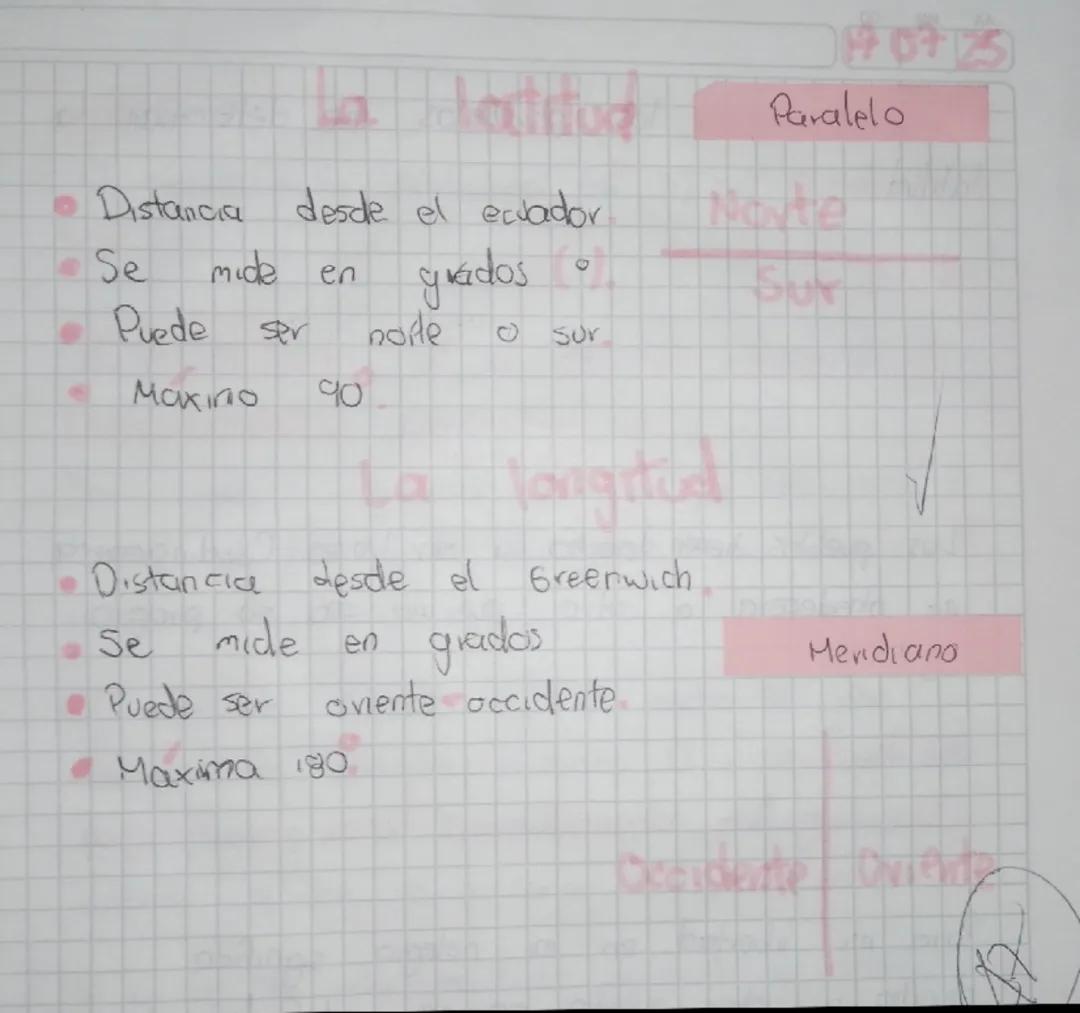 17 07 25
La latitud
Paralelo
• Distancia desde el ecuador.
• Se mide en grados (°).
• Puede ser norte o sur.
• Máximo 90°.
Norte
Sur
La longitud
• Distancia desde el Greenwich.
• Se mide en grados
• Puede ser oriente-occidente.
• Máxima 180°.
Meridiano
Occidente | Oriente